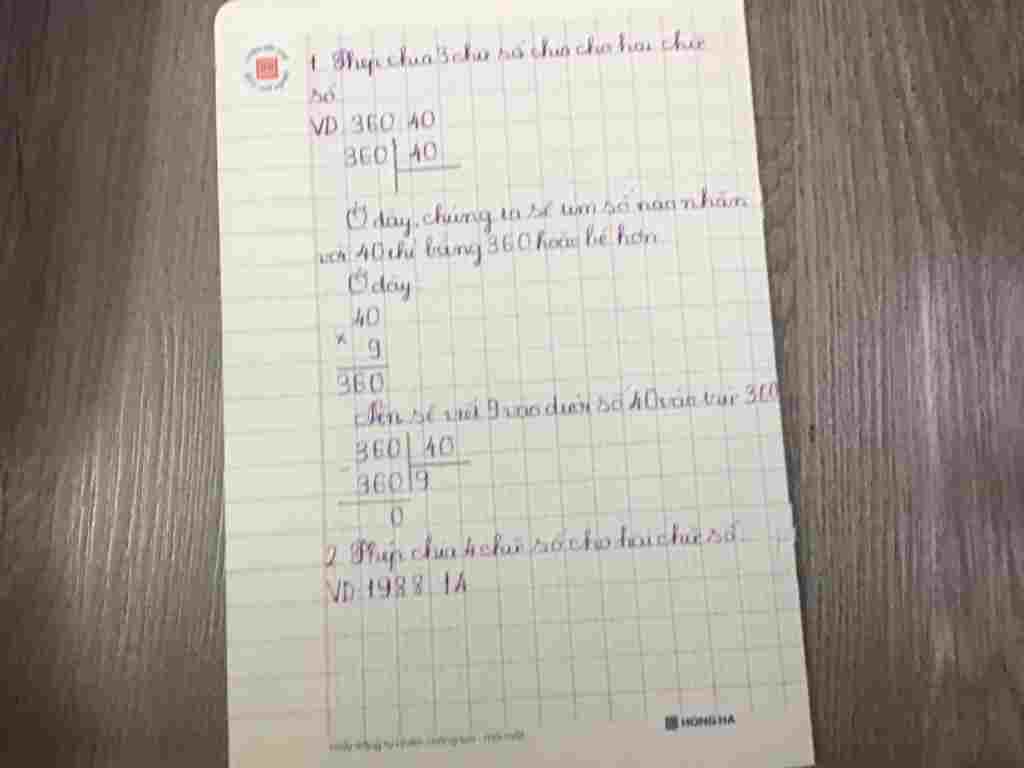 1. Phép chia 3 chữ số chia cho hai chữ
số.
VD: 360:40
360 40
Ở đây, chúng ta sẽ tìm số nào nhân
với 40 chỉ bằng 360 hoặc bé hơn.
Ở đây
40
× 9
360
Nên sẽ viết 9 vào dưới số 40 và trừ 360
360 40
- 360 9
0
2. Phép chia 4 chữ số cho hai chữ số.
VD: 1988:14
HONG HA